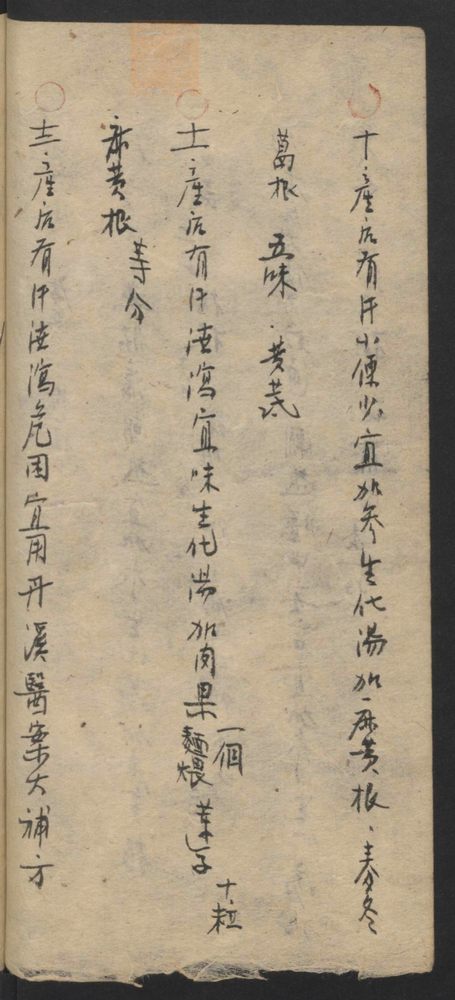 十產后有汗小便少宜加參生化湯加麻黄根、麦冬
葛根 五味、黄芪
十一產后有汗洩瀉宜味生化湯加肉果一個麵煨 蓮子十粒
麻黄根 等分
十二產后有汗洩瀉危困宜用丹溪醫案大補方